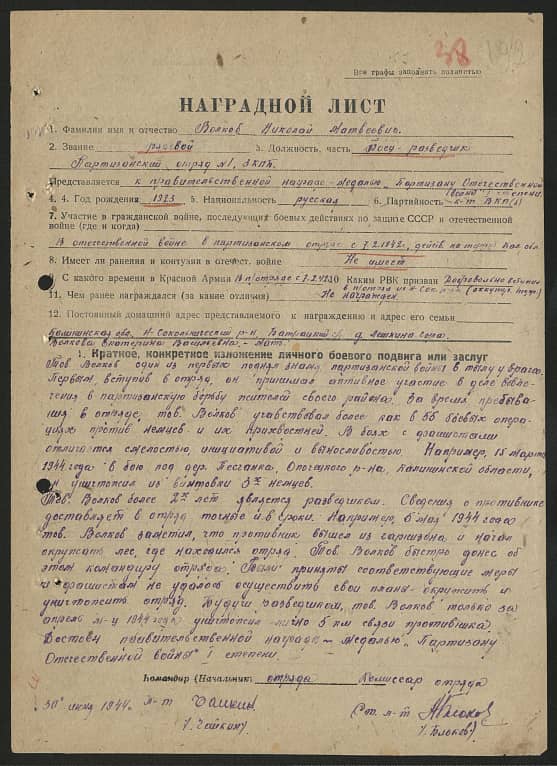 38 192
Все графы заполнять полностью
НАГРАДНОЙ ЛИСТ
1. Фамилия имя и отчество Волков Николай Матвеевич.
2. Звание рядовой 3. Должность, часть боец-разведчик
Партизанский отряд №1, 3КПБ.
Представляется к правительственной награде-медалью „Партизану Отечественной
войны" I степени.
4. 4. Год рождения 1923 5. Национальность русская 6. Партийность к-т ВКП(б)
7. Участие в гражданской войне, последующих боевых действиях по защите СССР и отечественной
войне (где и когда)
В отечественной войне в партизанском отряде с 7.2.1942г.
8. Имеет ли ранения и контузии в отечест. войне Не имеет
9. С какого времени в Красной Армии В п/отряде с 7.2.42 10 Каким РВК призван Добровольно вступил
в п/отряд из
11. Чем ранее награждался (за какие отличия) Не награжден.
12. Постоянный домашний адрес представляемого к награждению и адрес его семьи
Калининская обл, Н-Сокольнический р-н, д.
Волкова Екатерина - мать.
1. Краткое, конкретное изложение личного боевого подвига или заслуг
Тов Волков один из первых поднял знамя партизанской войны в тылу у врага.
Первым, вступив в отряд, он принимал активное участие в деле вовле-
чения в партизанскую борьбу жителей своего района. За время пребыва-
ния в отряде, тов. Волков учавствовал более как в 56 боевых опера-
циях против немцев и их прихвостней. В боях с фашистами
отличался смелостью, инициативой и выносливостью. Например, 15 марта
1944 года в бою под дер. Песчанка, Опочецкого р-на, калининской области,
он уничтожил из винтовки 3х немцев.
Тов. Волков более 2х лет является разведчиком. Сведения о противнике
доставляет в отряд точные и в сроки. Например, 6 мая 1944 года
тов. Волков заметил, что противник вышел из гарнизона и начал
окружать лес, где находился отряд. Тов Волков быстро донес об
этом командиру отряда. Были приняты соответствующие меры
и фашистам не удалось осуществить свои планы-окружить и
уничтожить отряд. Будучи разведчиком, тов. Волков только за
апрель м-ц 1944 года уничтожил лично 5 км связи противника
Достоен правительственной награды - медалью „Партизану
Отечественной войны" I степени.
Командир (Начальник) отряда Комиссар отряда
30 июня 1944. л-т Чайкин Ст. л-т
/Чайкин/ /Блоков/